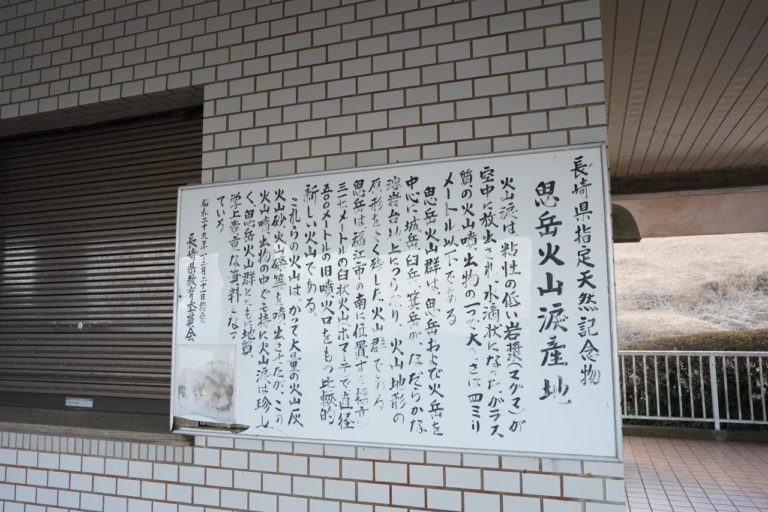 長崎県指定天然記念物
鬼岳火山涙産地
火山涙は粘性の低い岩漿(マグマ)が
空中に放出され水滴状になったガラス
質の火山噴出物の一つで大きさは四ミリ
メートル以下である
鬼岳火山群は鬼岳および火岳を
中心に城岳臼岳箕岳が なだらかな
溶岩台地上につらなり 火山地形の
原形をよく残した火山群である
鬼岳は福江市の南に位置する標高
三一七メートルの臼状火山ホマーテで直径
五〇〇メートルの旧噴火口をもつ比較的
新しい火山である
これらの火山は かつて大量の火山灰
火山砂火山礫等を噴出したが この
火山噴出物の中でも特に火山涙は珍し
く 鬼岳火山群とともに地質
学上貴重な資料となっ
ている
昭和二十九年 月二十一日指定
長崎県教育委員会